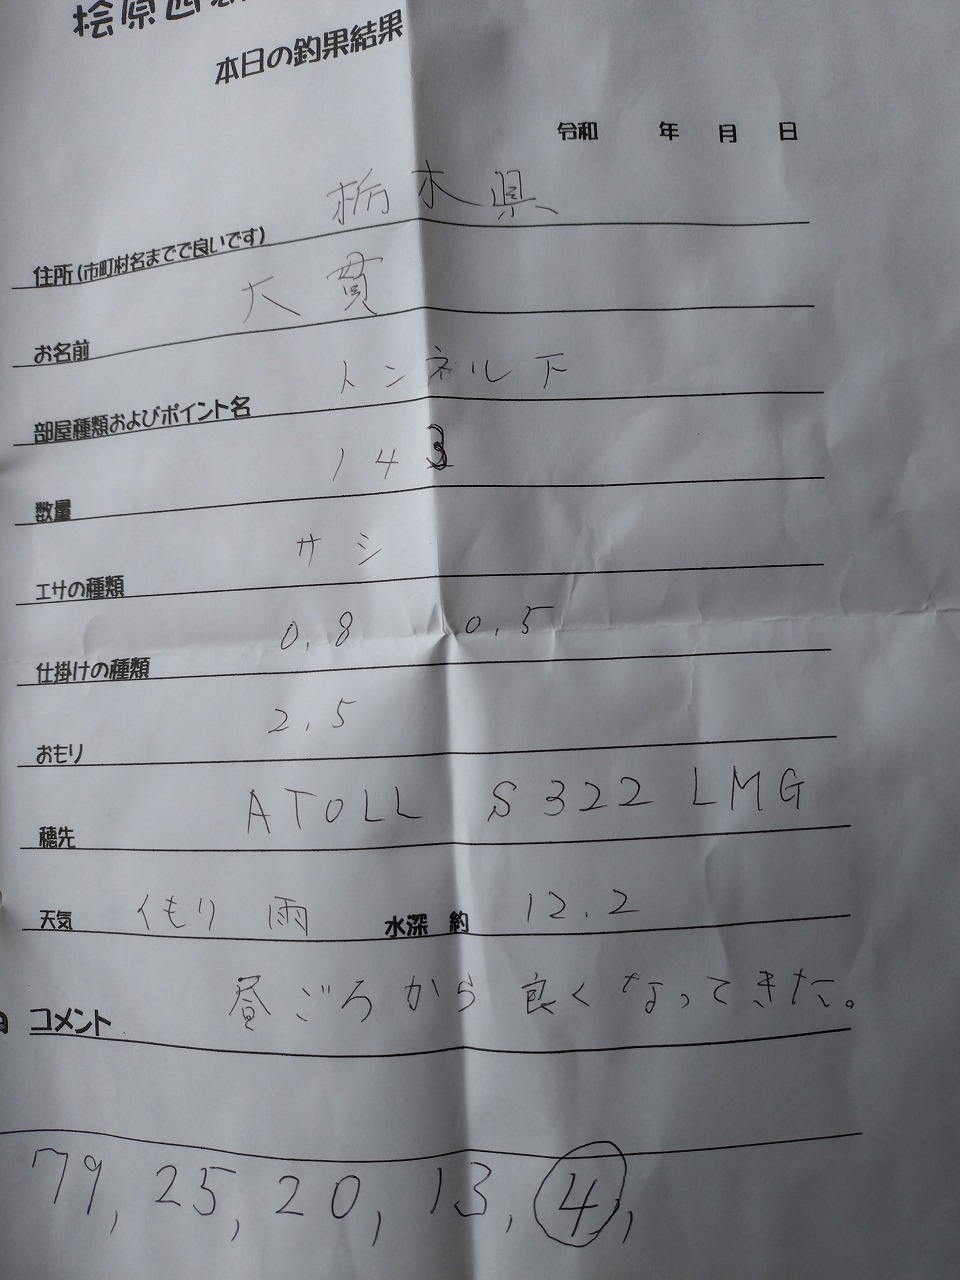 桧原西
本日の釣果結果
令和 年 月 日
住所(市町村名までで良いです) 栃木県
お名前 大貫
部屋種類およびポイント名 トンネル下
数量 143
エサの種類 サシ
仕掛けの種類 0,8 0,5
おもり 2,5
穂先 ATOLL S322 LMG
天気 くもり 雨 水深 約 12.2
コメント 昼ごろから良くなってきた。
79, 25, 20, 13, 4,